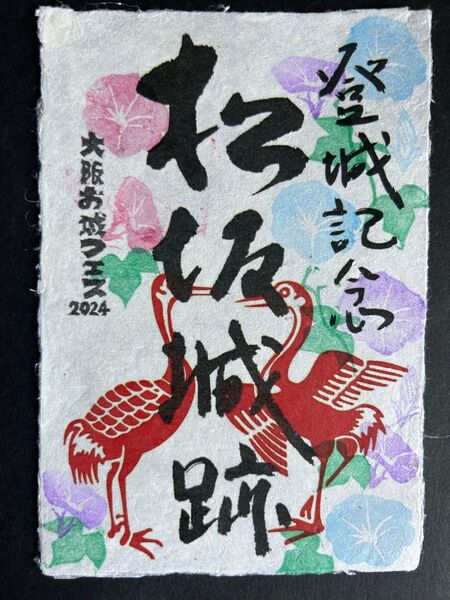 登城記念
松坂城跡
大阪お城フェス
2024